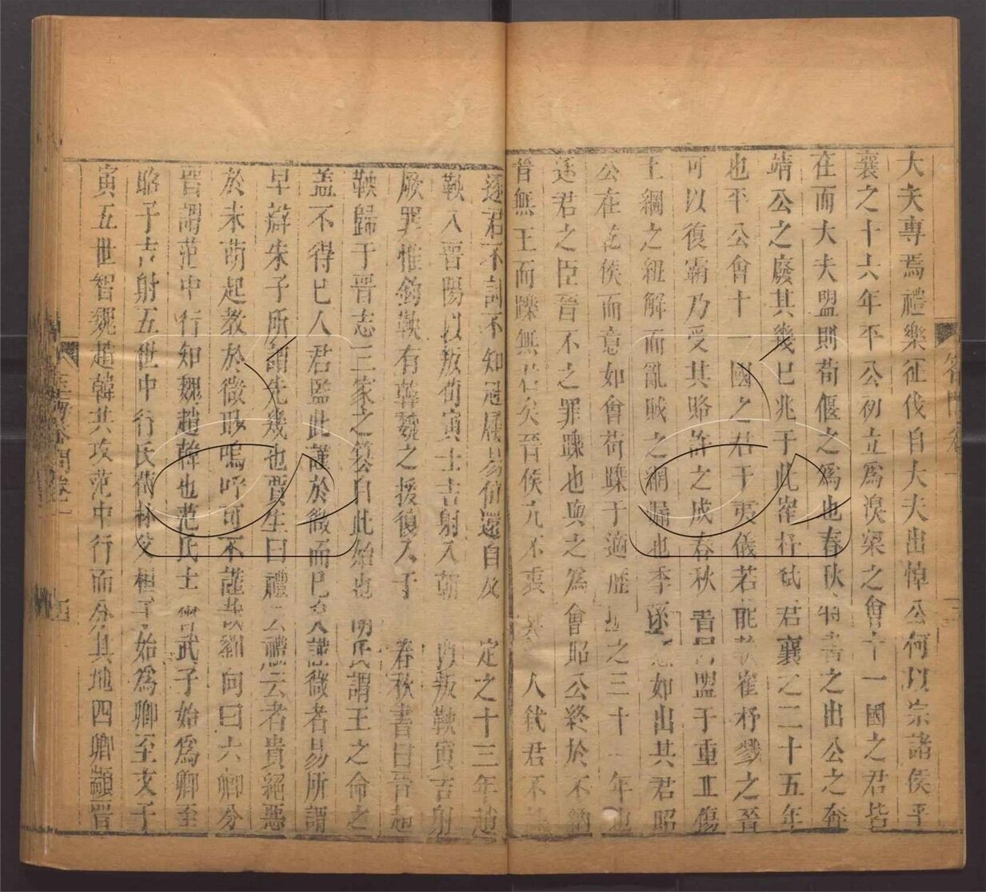 大夫專焉禮樂征伐自大夫出悼公何以宗諸侯乎
襄之十六年平公初立為溴梁之會十一國之君皆
在而大夫盟則荀偃之為也春秋之出公之奔
靖公之廢其幾已兆于此崔杼弒君襄之二十五年
也平公會十一國之君于夷儀若能執崔杼戮之晉
可以復霸乃受其賂許之成春秋書同盟于重丘傷
王綱之紐解而亂賊之網漏也季孫意如出其君昭
公在乾侯而意如會荀躒于適歷昭之三十一年也
逐君之臣晉不之罪躒也與之為會昭公終於不納
晉無王而躒無君矣晉侯午不衷人弒君不
逐君不討不知冠屨易位還自及定之十三年趙
鞅入晉陽以叛荀寅士吉射入朝歌叛鞅寅吉射
厥罪惟鈞鞅有韓魏之援復入于春秋書曰晉趙
鞅歸于晉志三家之簒自此始也胡氏謂王之命之
蓋不得已人君監此謹於微而已矣謹微者易所謂
早辯朱子所謂先幾也賈生曰禮云禮云者貴絕惡
於未萌起教於微眇嗚呼可不謹哉劉向曰六卿分
晉謂范中行知魏趙韓也范氏士會武子始為卿至
昭子吉射五世中行氏荀林父桓子始為卿至文子
寅五世智魏趙韓共攻范中行而分其地四卿顓晉